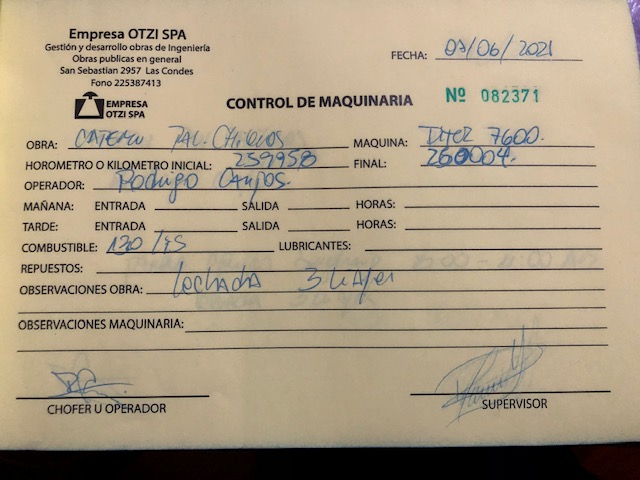 Empresa OTZI SPA
Gestión y desarrollo obras de Ingeniería
Obras publicas en general
San Sebastian 2957 Las Condes
Fono 225387413
FECHA: 07/06/2021
EMPRESA
OTZI SPA
CONTROL DE MAQUINARIA
Nº 082371
OBRA: MAQUINA: 7600.
HOROMETRO O KILOMETRO INICIAL: 259958 FINAL: 260004.
OPERADOR: Rodrigo Campos.
MAÑANA: ENTRADA SALIDA HORAS:
TARDE: ENTRADA SALIDA HORAS:
COMBUSTIBLE: LUBRICANTES:
REPUESTOS:
OBSERVACIONES OBRA: 3 viajes
OBSERVACIONES MAQUINARIA:
CHOFER U OPERADOR
SUPERVISOR